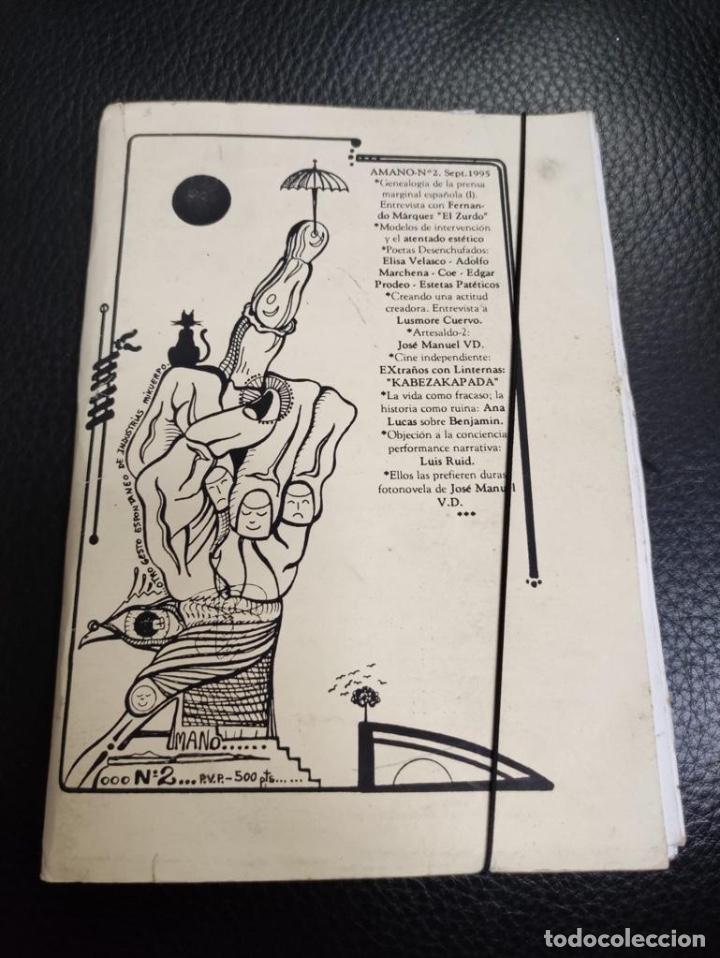 AMANO-Nº2. Sept.1995
*Genealogía de la prensa
marginal española (I).
Entrevista con Fernan-
do Márquez "El Zurdo"
*Modelos de intervención
y el atentado estético
*Poetas Desenchufados:
Elisa Velasco - Adolfo
Marchena - Coe - Edgar
Prodeo - Estetas Patéticos
*Creando una actitud
creadora. Entrevista a
Lusmore Cuervo.
*Artesaldo-2:
José Manuel VD.
*Cine independiente:
EXtraños con Linternas:
"KABEZAKAPADA"
*La vida como fracaso; la
historia como ruina: Ana
Lucas sobre Benjamin.
*Objeción a la conciencia
performance narrativa:
Luis Ruid.
*Ellos las prefieren duras
fotonovela de José Manuel
V.D.
***
OTRO GESTO ESPONTANEO DE INDUSTRIAS MIKUERPO
AMANO......
ooo Nº2... P.V.P.-500 pts......
todocoleccion
todocoleccion.net